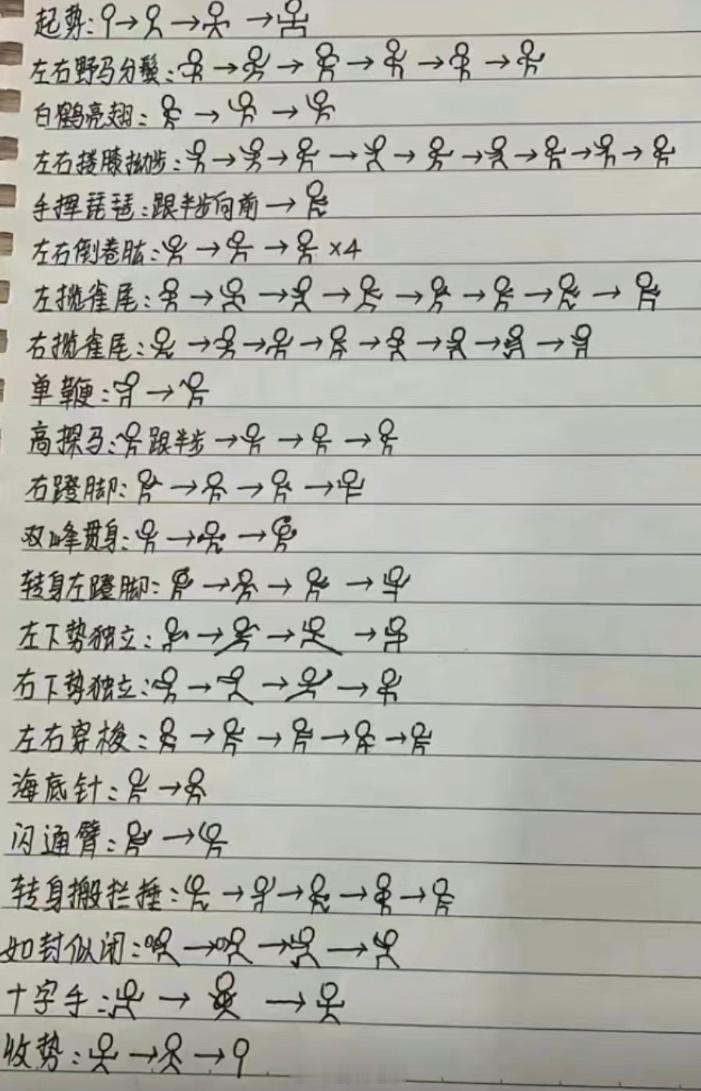 起势:
左右野马分鬃:
白鹤亮翅:
左右搂膝拗步:
手挥琵琶:跟半步向前
左右倒卷肱: ×4
左揽雀尾:
右揽雀尾:
单鞭:
高探马: 跟半步
右蹬脚:
双峰贯身:
转身左蹬脚:
左下势独立:
右下势独立:
左右穿梭:
海底针:
闪通臂:
转身搬拦捶:
如封似闭:
十字手:
收势: